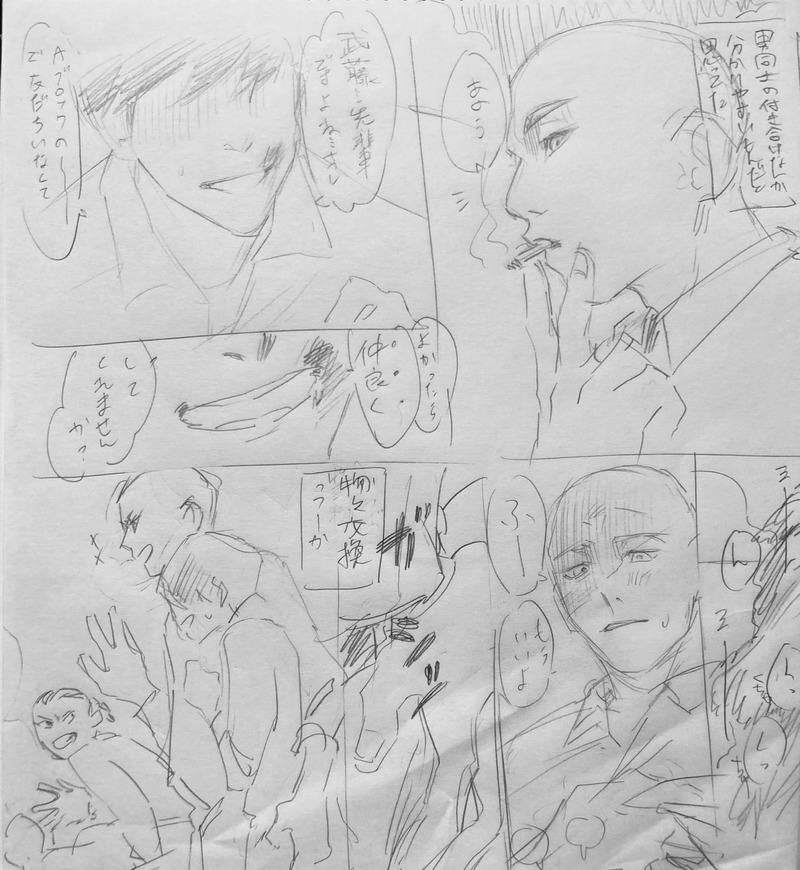 男同士の付き合いなんか
分かりやすいもんだと
思ってた
あのう
武藤先輩
ですよね
Aブロックの
で友だちいなくて
よかったら
仲良く
して
くれません
かっ
ん
ふー
もう
いいよ
物々交換
っつーか